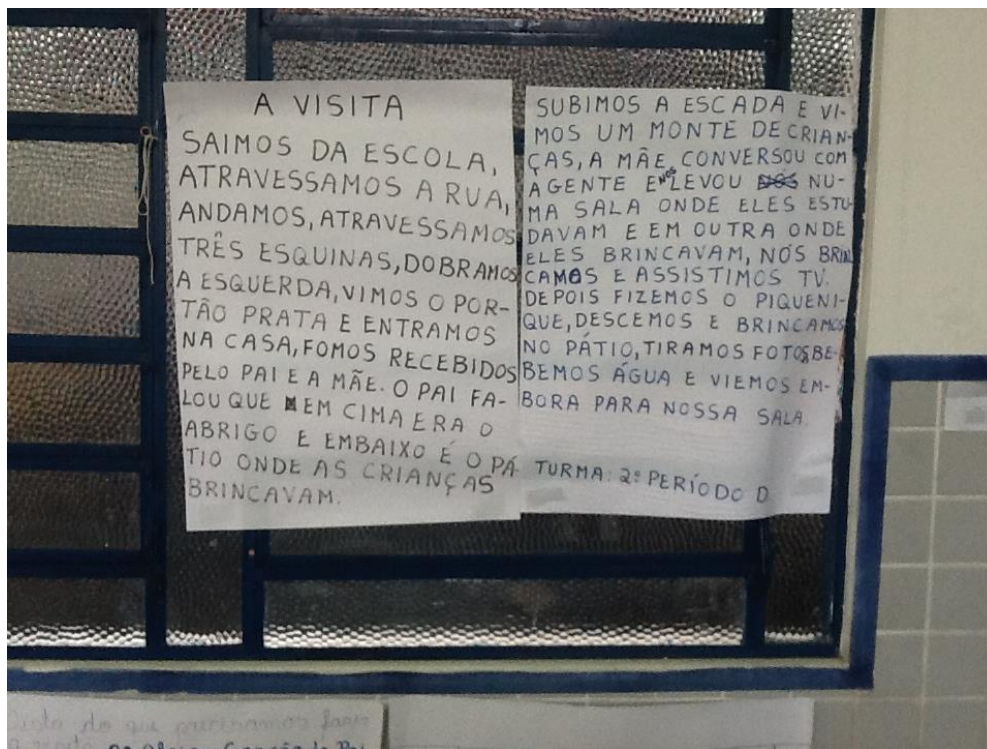 A VISITA
SAIMOS DA ESCOLA,
ATRAVESSAMOS A RUA,
ANDAMOS, ATRAVESSAMOS
TRÊS ESQUINAS, DOBRAMOS
A ESQUERDA, VIMOS O POR-
TÃO PRATA E ENTRAMOS
NA CASA, FOMOS RECEBIDOS
PELO PAI E A MÃE. O PAI FA-
LOU QUE EM CIMA ERA O
ABRIGO E EMBAIXO É O PÁ
TIO ONDE AS CRIANÇAS
BRINCAVAM.
SUBIMOS A ESCADA E VI-
MOS UM MONTE DE CRIAN-
ÇAS, A MÃE CONVERSOU COM
A GENTE E NOS LEVOU NU-
MA SALA ONDE ELES ESTU
DAVAM E EM OUTRA ONDE
ELES BRINCAVAM, NÓS BRIN
CAMOS E ASSISTIMOS TV.
DEPOIS FIZEMOS O PIQUENI-
QUE, DESCEMOS E BRINCAMOS
NO PÁTIO, TIRAMOS FOTOS, BE-
BEMOS ÁGUA E VIEMOS EM-
BORA PARA NOSSA SALA.
TURMA: 2º PERÍODO D